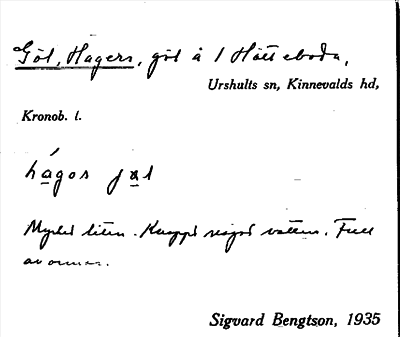 Göl, Hagers, göl å 1 Hätteboda,
Urshults sn, Kinnevalds hd,
Kronob. l.
hágos jæl
Mycket liten. Knappt något vatten. Full
av ormar.
Sigvard Bengtson, 1935